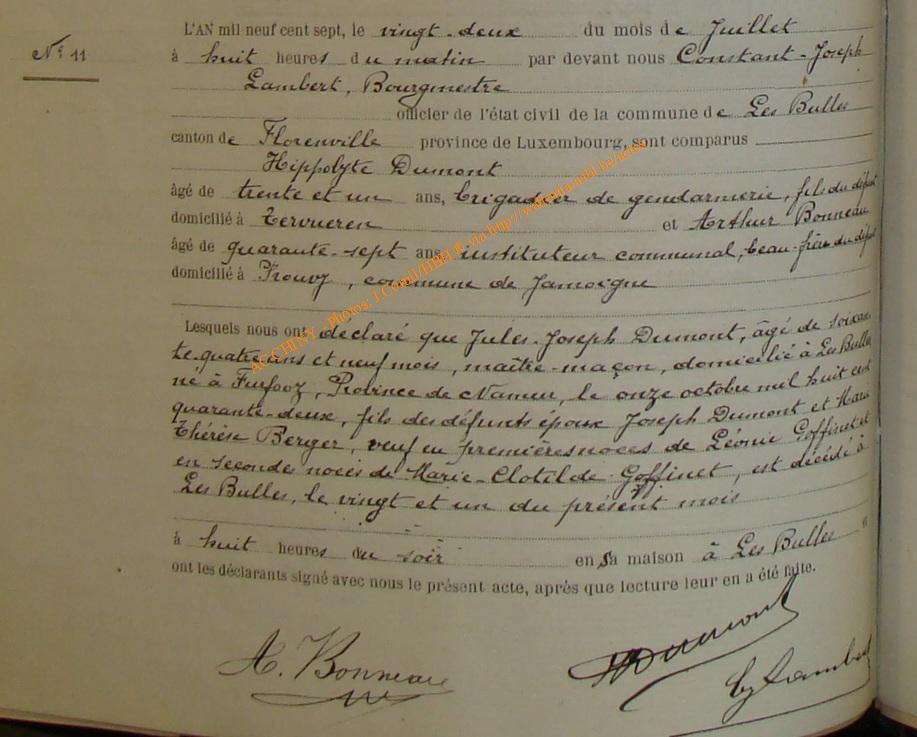 L'AN mil neuf cent sept, le vingt-deux du mois de Juillet
N° 11
à huit heures du matin par devant nous Constant-Joseph
Lambert, Bourgmestre
officier de l'état civil de la commune de Les Bulles
canton de Florenville province de Luxembourg, sont comparus
Hippolyte Dumont
âgé de trente et un ans, brigadier de gendarmerie, fils du défunt
domicilié à Tervueren et Arthur Bonneau
âgé de quarante-sept ans instituteur communal, beau-frère du défunt
domicilié à Prouvy, commune de Jamoigne
Lesquels nous ont déclaré que Jules-Joseph Dumont, âgé de soixan
te-quatre ans et neuf mois, maître-maçon, domicilié à Les Bulles
né à Furfooz, Province de Namur, le onze octobre mil huit cent
quarante-deux, fils des défunts époux Joseph Dumont et Marie
Thérèse Berger, veuf en premières noces de Léonie Goffinet et
en secondes noces de Marie-Clotilde Goffinet, est décédé à
Les Bulles, le vingt et un du présent mois
à huit heures du soir en sa maison à Les Bulles
ont les déclarants signé avec nous le présent acte, après que lecture leur en a été faite.
A. Bonneau
Dumont
Lambert